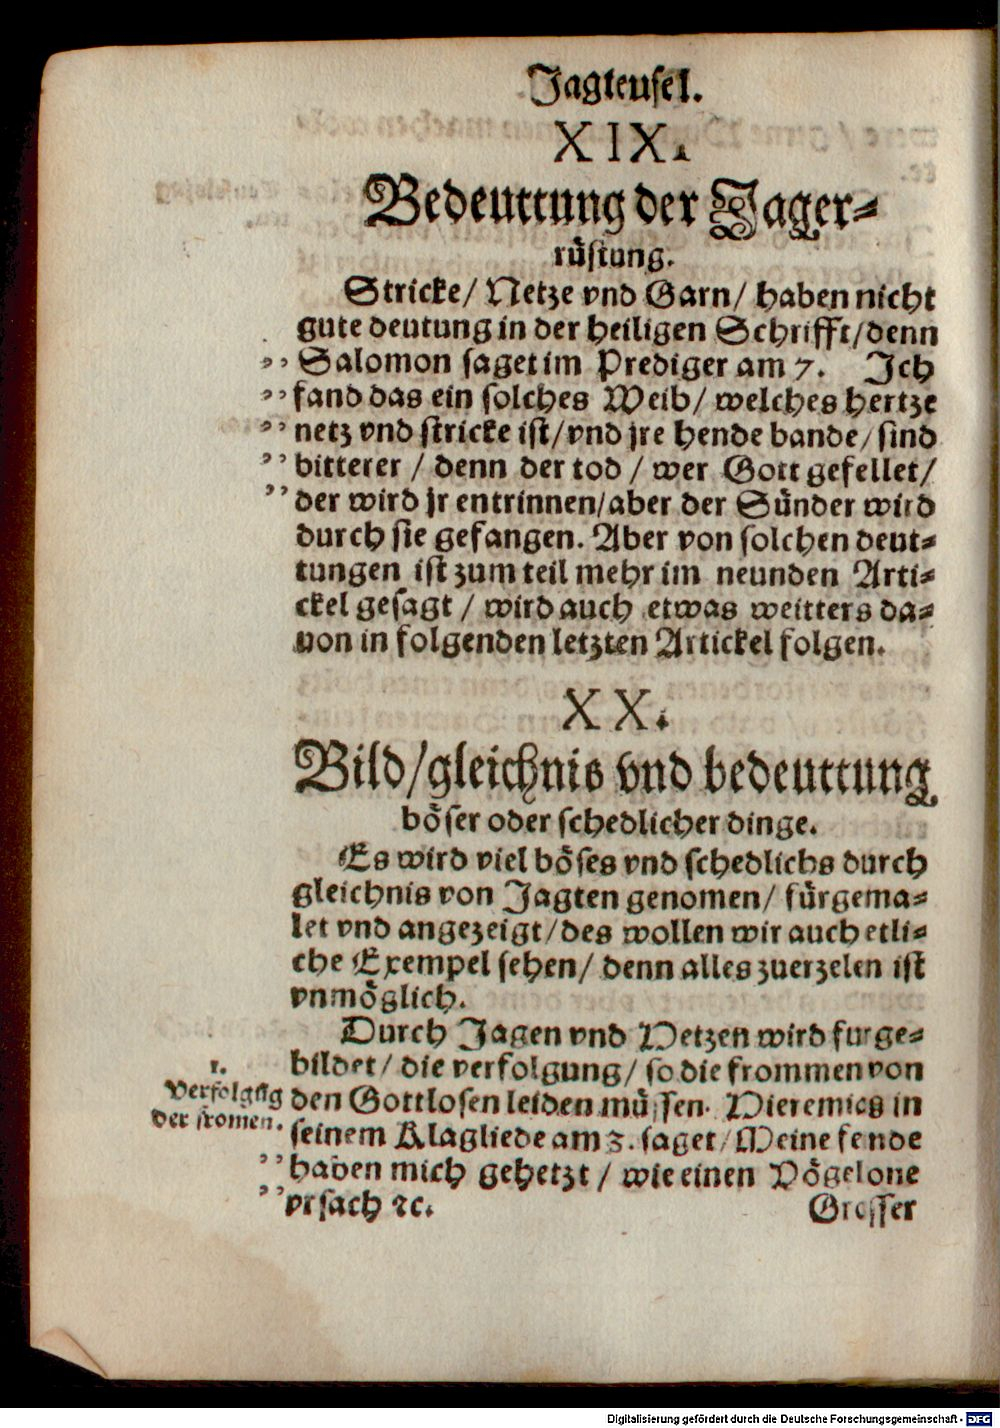 Jagteufel.
XIX.
Bedeuttung der Jager⸗
rüſtung.
Stricke/ Netze vnd Garn/ haben nicht
gute deutung in der heiligen Schrifft/denn
„ Salomon ſaget im Prediger am 7. Jch
„ fand das ein ſolches Weib/ welches hertze
„ netz vnd ſtricke iſt/vnd jre hende bande/ſind
„ bitterer / denn der tod / wer Gott gefellet/
„ der wird jr entrinnen/aber der Sünder wird
durch ſie gefangen. Aber von ſolchen deut⸗
tungen iſt zum teil mehr im neunden Arti⸗
ckel geſagt / wird auch etwas weitters da⸗
von in folgenden letzten Artickel folgen.
XX.
Bild/gleichnis vnd bedeuttung
böſer oder ſchedlicher dinge.
Es wird viel böſes vnd ſchedlichs durch
gleichnis von Jagten genomen/ fürgema⸗
let vnd angezeigt/des wollen wir auch etli⸗
che Exempel ſehen/ denn alles zuerzelen iſt
vnmöglich.
Durch Jagen vnd Netzen wird furge⸗
bildet/ die verfolgung/ ſo die frommen von
1.
Verfolgũg
der fromen.
den Gottloſen leiden müſſen. Hieremias in
ſeinem Klagliede am 3. ſaget/Meine fende
„ haben mich gehetzt / wie einen Vögel one
„ vrſach ꝛc.
Groſſer
Digitalisierung gefördert durch die Deutsche Forschungsgemeinschaft - DFG